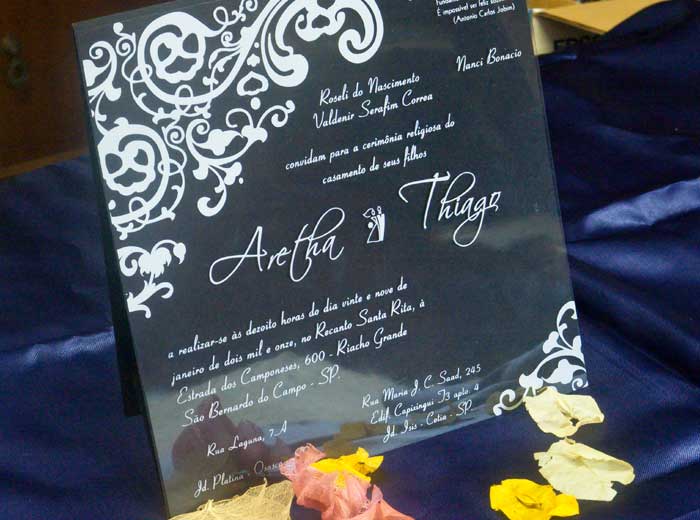 É impossível ser feliz
(Antonio Carlos Jobim)
Nanci Bonacio
Roseli do Nascimento
Valdenir Serafim Correa
convidam para a cerimônia religiosa do
casamento de seus filhos
Aretha
Thiago
a realizar-se às dezoito horas do dia vinte e nove de
janeiro de dois mil e onze, no Recanto Santa Rita, à
Estrada dos Camponeses, 600 - Riacho Grande
São Bernardo do Campo - SP.
Rua Laguna, 7-A
Jd. Platina - Osasco
Rua Maria J. C. Saad, 245
Edif. Capixingui T3 apto. 4
Jd. Isis - Cotia - SP.